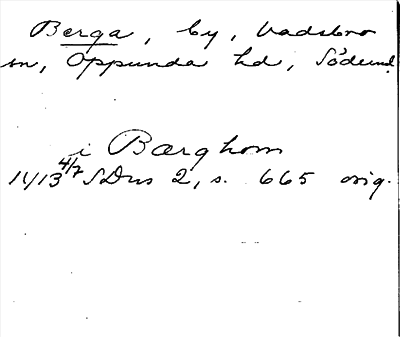 Berga, by, Vadsbro
sn, Oppunda hd, Söderml.
i Bærghom
1413 4/7 SDns 2, s. 665 orig.